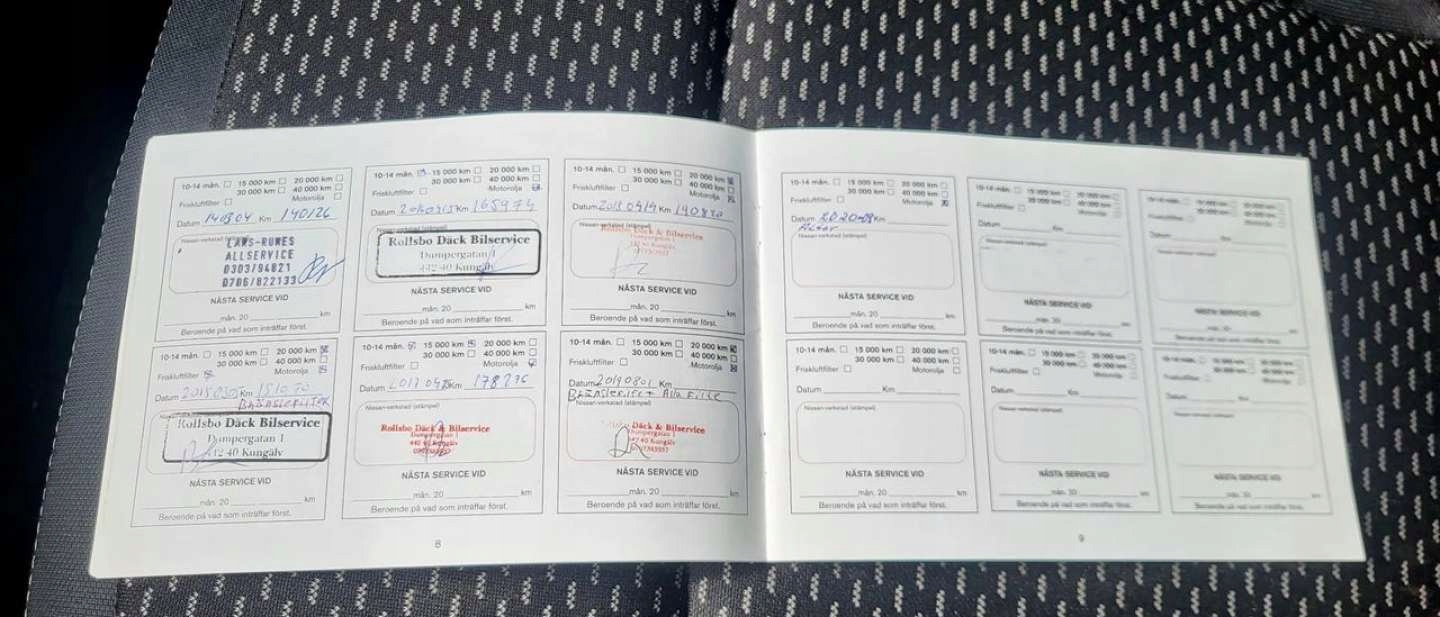 10-14 mån. 15 000 km 20 000 km
30 000 km 40 000 km
Friskluftfilter Motorolja
Datum 140304 Km 140126
Nissan-verkstad (stämpel)
LAWS-RUNES
ALLSERVICE
0303/94821
0706/822133
NÄSTA SERVICE VID
mån. 20 km
Beroende på vad som inträffar först.
10-14 mån. 15 000 km 20 000 km
30 000 km 40 000 km
Friskluftfilter Motorolja
Datum Km 165974
Nissan-verkstad (stämpel)
Rollsbo Däck Bilservice
Dumpergatan 1
442 40 Kungälv
NÄSTA SERVICE VID
mån. 20 km
Beroende på vad som inträffar först.
10-14 mån. 15 000 km 20 000 km
30 000 km 40 000 km
Friskluftfilter Motorolja
Datum Km
Nissan-verkstad (stämpel)
Rollsbo Däck & Bilservice
Dumpergatan 1
442 40 Kungälv
NÄSTA SERVICE VID
mån. 20 km
Beroende på vad som inträffar först.
10-14 mån. 15 000 km 20 000 km
30 000 km 40 000 km
Friskluftfilter Motorolja
Datum Km 151070
Nissan-verkstad (stämpel)
Rollsbo Däck Bilservice
Dumpergatan 1
442 40 Kungälv
NÄSTA SERVICE VID
mån. 20 km
Beroende på vad som inträffar först.
10-14 mån. 15 000 km 20 000 km
30 000 km 40 000 km
Friskluftfilter Motorolja
Datum Km 178276
Nissan-verkstad (stämpel)
Rollsbo Däck & Bilservice
Dumpergatan 1
442 40 Kungälv
NÄSTA SERVICE VID
mån. 20 km
Beroende på vad som inträffar först.
10-14 mån. 15 000 km 20 000 km
30 000 km 40 000 km
Friskluftfilter Motorolja
Datum 20190801 Km
Nissan-verkstad (stämpel)
Däck & Bilservice
Dumpergatan 1
442 40 Kungälv
NÄSTA SERVICE VID
mån. 20 km
Beroende på vad som inträffar först.
8
10-14 mån. 15 000 km 20 000 km
30 000 km 40 000 km
Friskluftfilter Motorolja
Datum Km
Nissan-verkstad (stämpel)
NÄSTA SERVICE VID
mån. 20 km
Beroende på vad som inträffar först.
10-14 mån. 15 000 km 20 000 km
30 000 km 40 000 km
Friskluftfilter Motorolja
Datum Km
Nissan-verkstad (stämpel)
NÄSTA SERVICE VID
mån. 20 km
Beroende på vad som inträffar först.
10-14 mån.
Friskluftfilter
Datum Km
NÄSTA SERVICE VID
Beroende på vad som inträffar först.
10-14 mån. 15 000 km 20 000 km
30 000 km 40 000 km
Friskluftfilter Motorolja
Datum Km
Nissan-verkstad (stämpel)
NÄSTA SERVICE VID
mån. 20 km
Beroende på vad som inträffar först.
10-14 mån. 15 000 km 20 000 km
30 000 km 40 000 km
Friskluftfilter Motorolja
Datum Km
Nissan-verkstad (stämpel)
NÄSTA SERVICE VID
Beroende på vad som inträffar först.
10-14 mån.
Datum Km
NÄSTA SERVICE VID
Beroende på vad som inträffar först.
9